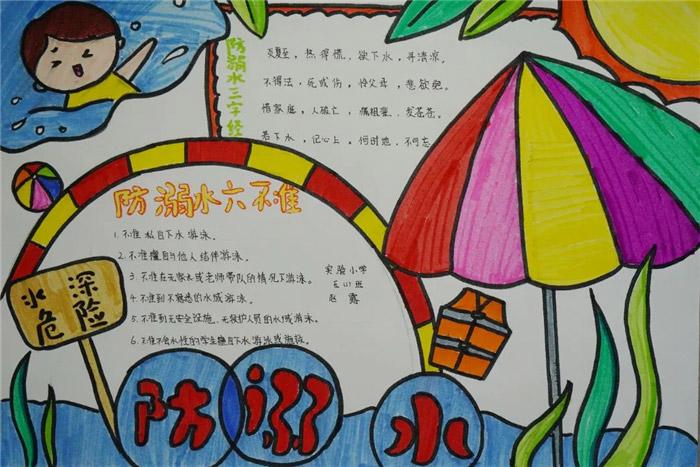 防溺水三字经
炎夏至，热得慌，欲下水，弄清凉。
不得法，死或伤，怜父母，悲欲绝。
惜家庭，人破亡，痛祖辈，发苍苍。
若下水，记心上，何时地，不可忘
防溺水六不准
1.不准私自下水游泳。
2.不准擅自与他人结伴游泳。
3.不准在无家长或老师带队的情况下游泳。
4.不准到不熟悉的水域游泳。
5.不准到无安全设施、无救护人员的水域游泳。
6.不准不会水性的学生擅自下水游泳或施救。
实验小学
赵露
水深
危险
防溺水